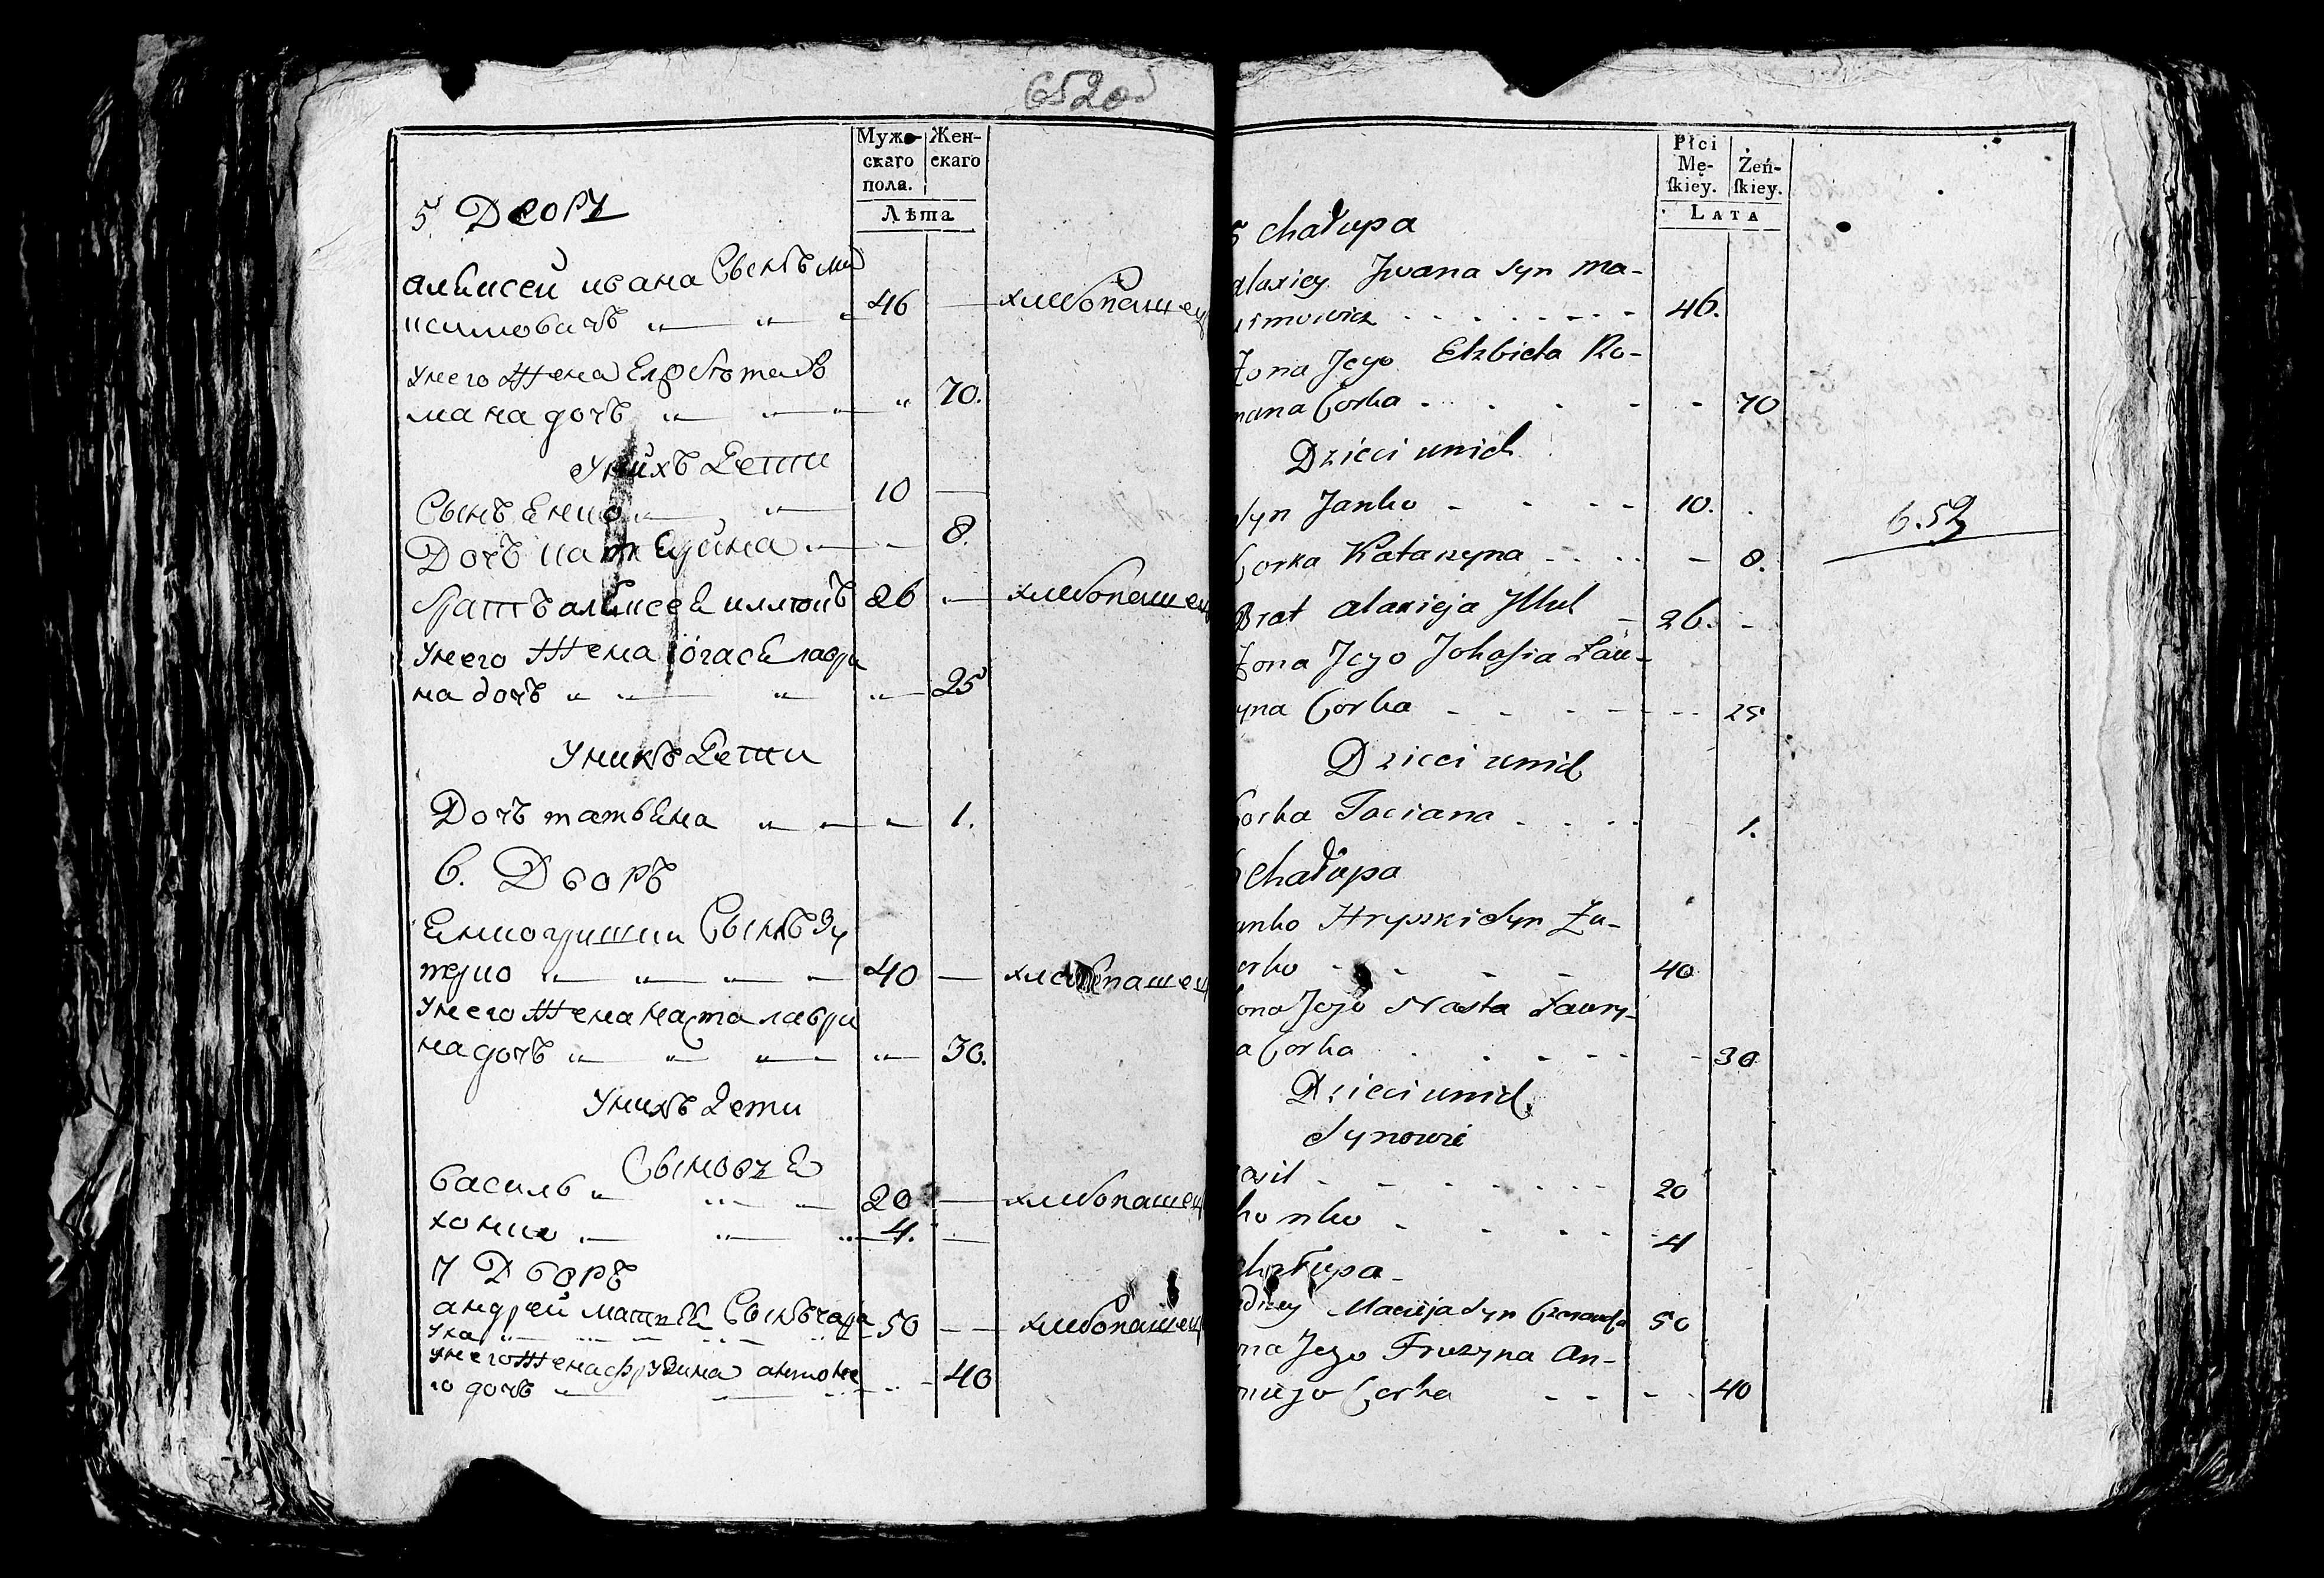 652об
Мужескаго пола.
Женскаго
Лѣта
5 Дворъ
алексей ивана Сынъ ма
ксимовичъ 46 — хлебопашец
Унего Жена Елзбета Ро
мана дочъ 70.
Унихъ Дети
Сынъ Енко 10 —
Дочъ катерина 8.
братъ алексея иллюкъ 26 — хлебопашец
Унего Жена югася лаври
на дочъ 25
Унихъ Дети
Дочъ татьяна 1.
6. Дворъ
Енко гришки Сынъ Зу
терко 40 — хлебопашец
Унего Жена наста лаври
на дочъ 30.
Унихъ дети
Сыновья
василь 20 — хлебопашец
хомко 4. —
7 Дворъ
андрей матвея Сынъ чара
ука 50 — хлебопашец
Унего Жена фрузина антоне
го дочъ 40
Płci Mę-
skiey.
Żeń-
skiey.
LATA
5 chałupa
alaxiey Jwana syn Ma-
simowicz 46.
Żona Jego Elzbieta Ro-
mana Corka 70
Dzieci unich
Syn Janko 10.
Corka Katarzyna 8.
6.52
Brat alaxieja 26.
Żona Jego Johasia Ław-
ryna Corka 25
Dzieci unich
Corka Taciana 1.
chałupa
anko Hryszki Syn Zu-
erko 40
ona Jego Nasta Ławry-
a Corka 30
Dzieci unich
Synowie
asil 20
homko 4
chałupa
drzey Macieja Syn 50
ona Jego Fruzyna An-
niego Corka 40